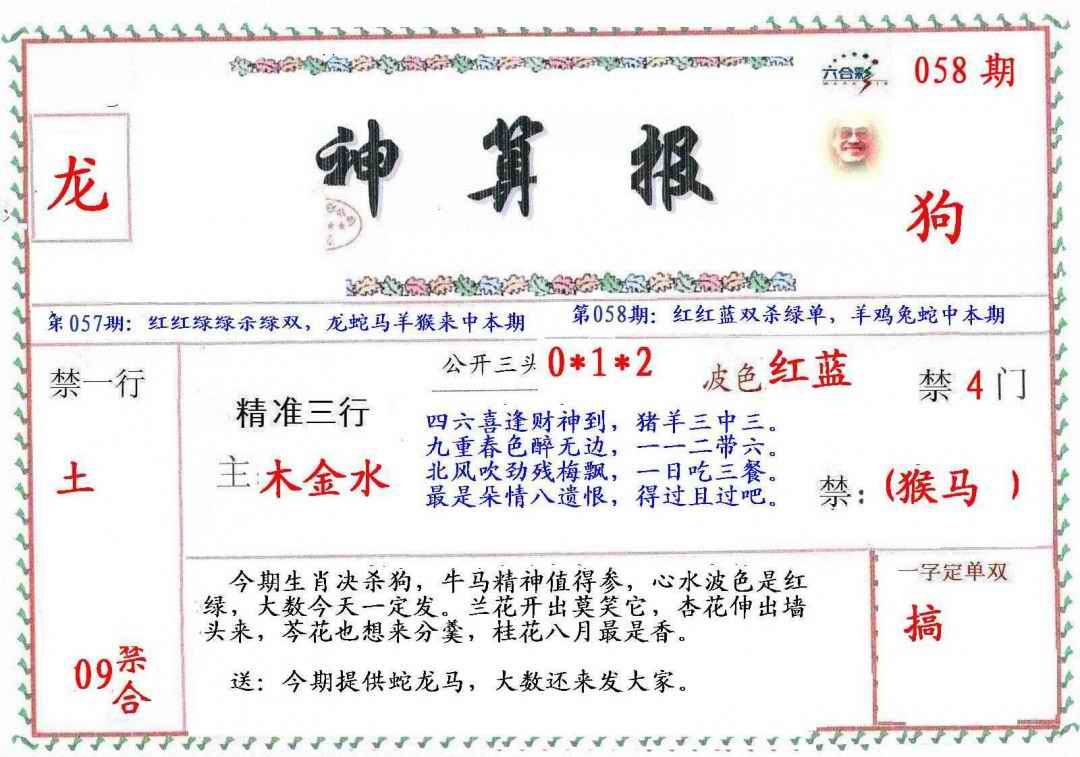 六合彩
058期
神算报
龙
狗
第057期：红红绿绿杀绿双，龙蛇马羊猴来中本期
第058期：红红蓝双杀绿单，羊鸡兔蛇中本期
禁一行
土
09禁合
公开三头 0*1*2
波色 红蓝
禁4门
精准三行
主：木金水
四六喜逢财神到，猪羊三中三。
九重春色醉无边，一一二带六。
北风吹劲残梅飘，一日吃三餐。
最是朵情八遗恨，得过且过吧。
禁：(猴马 )
今期生肖决杀狗，牛马精神值得参，心水波色是红
绿，大数今天一定发。兰花开出莫笑它，杏花伸出墙
头来，芩花也想来分羹，桂花八月最是香。
送：今期提供蛇龙马，大数还来发大家。
一字定单双
搞